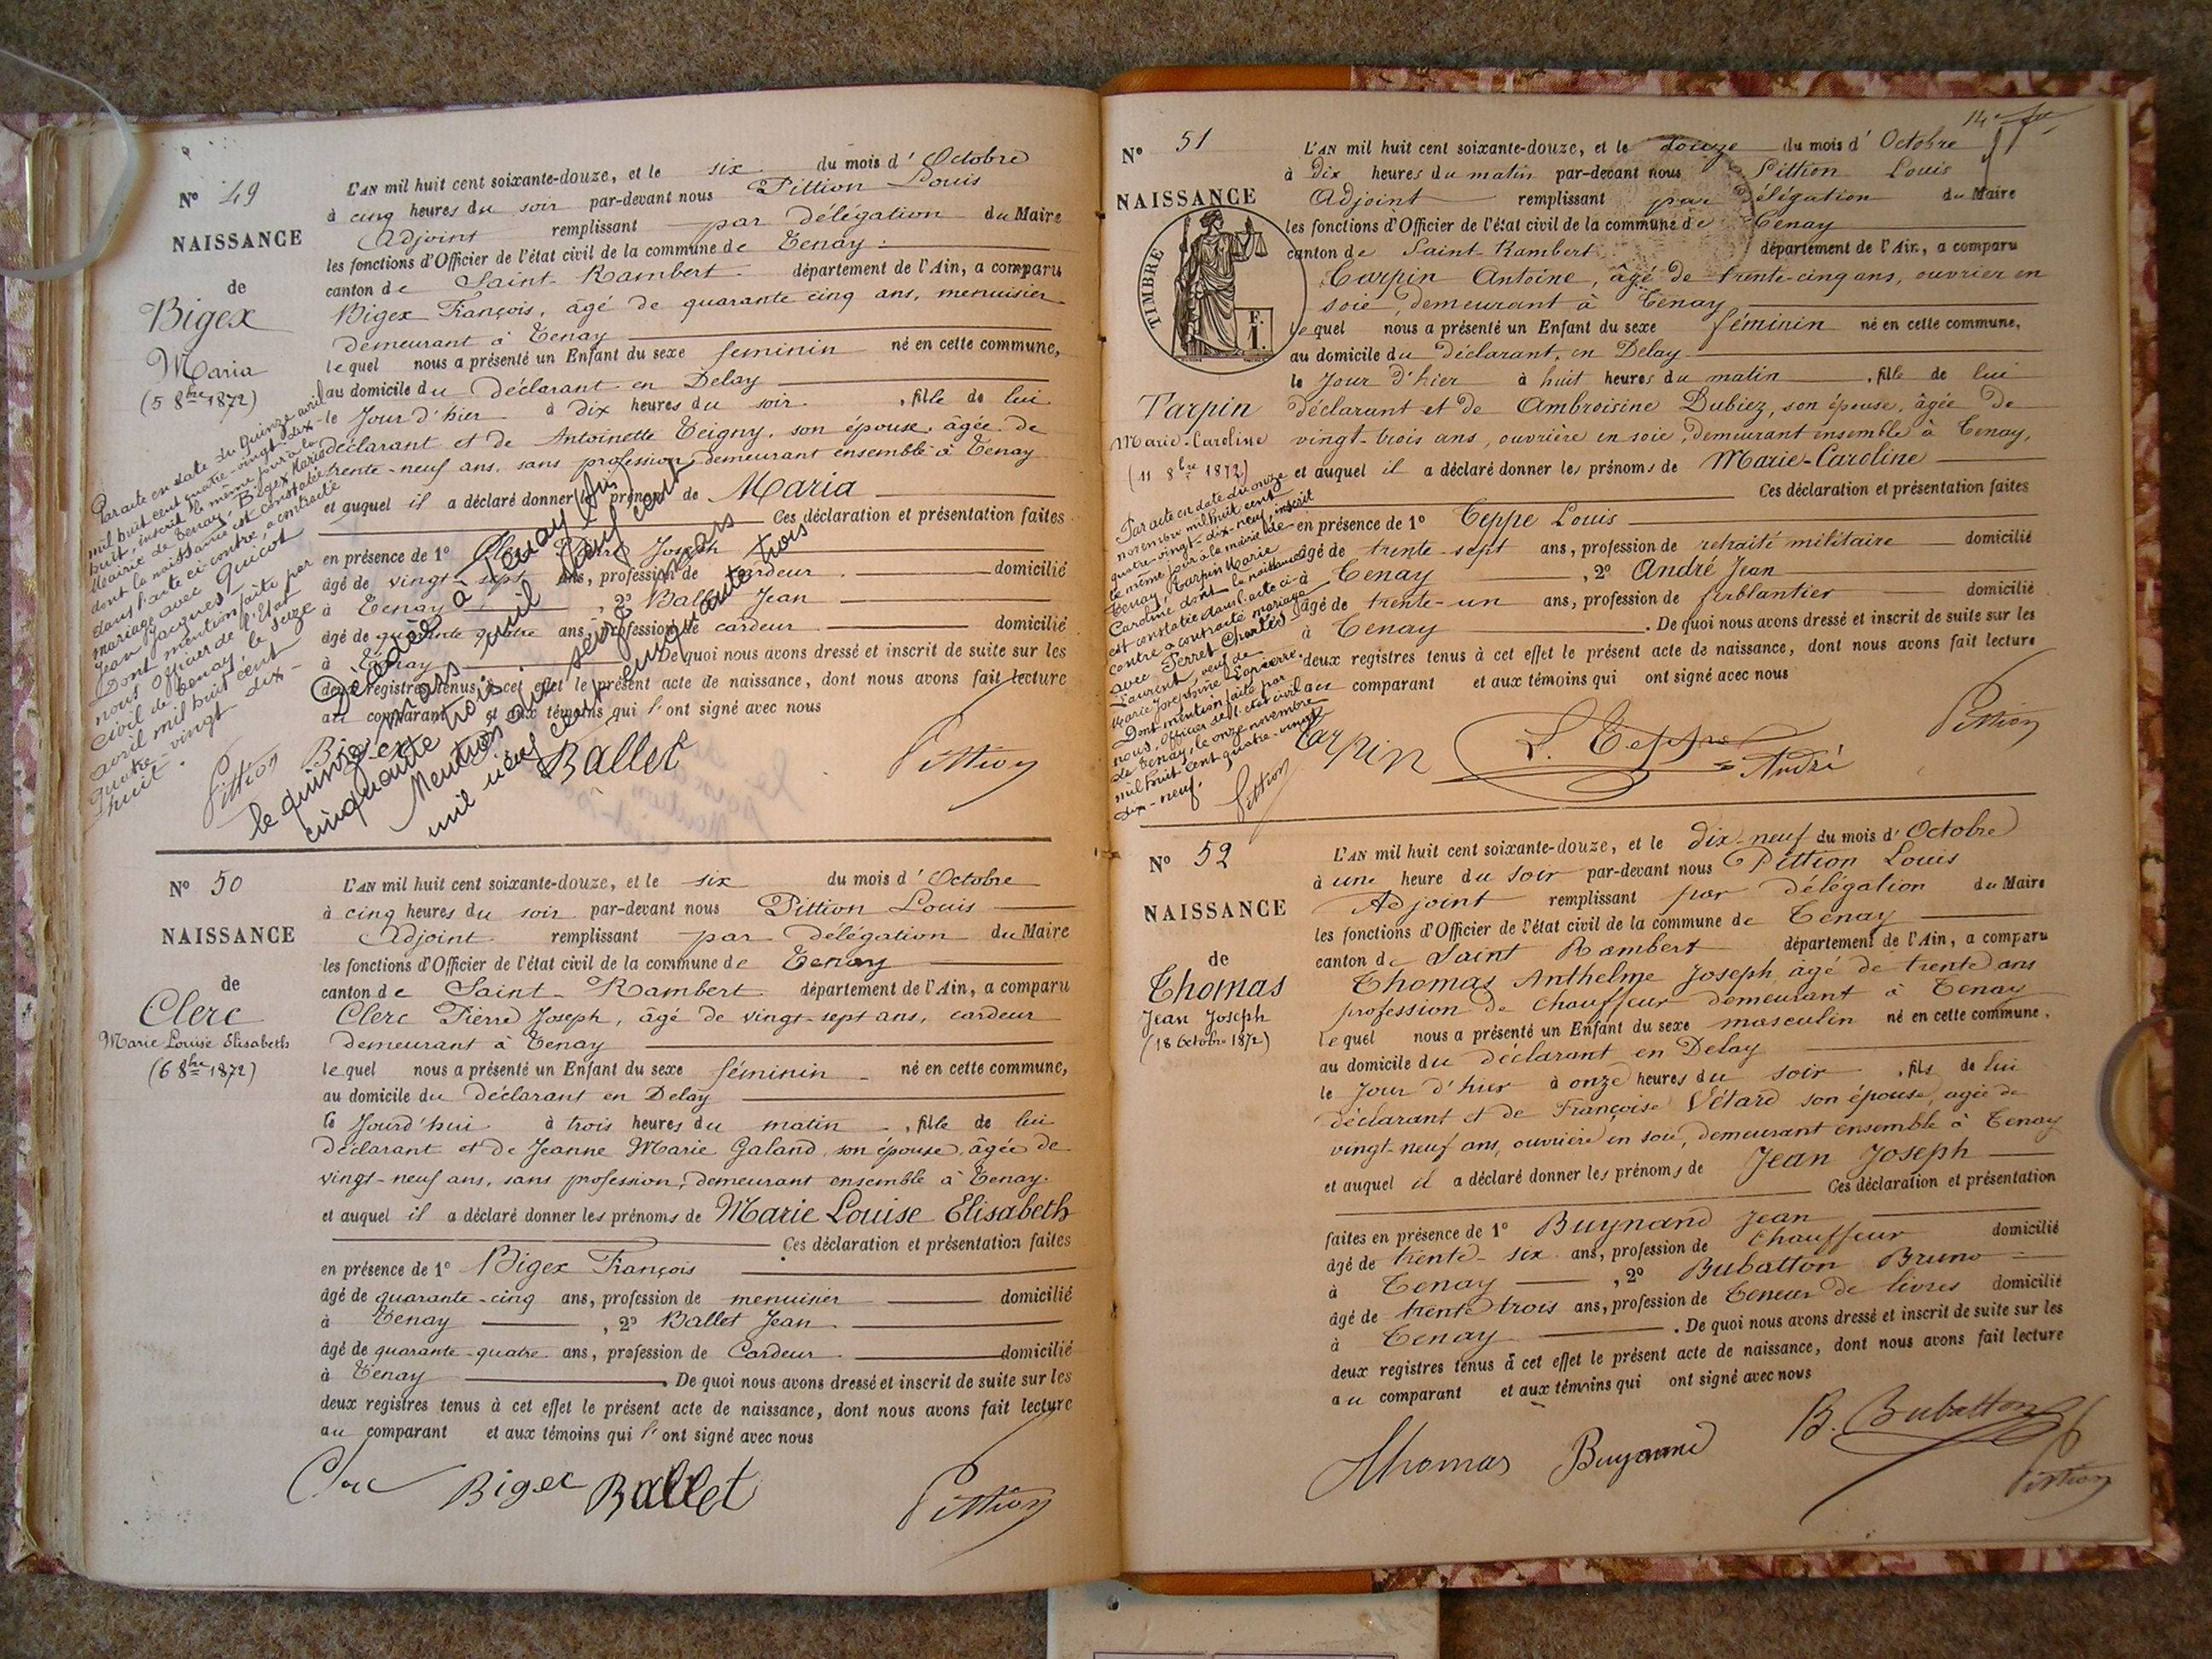 N° 49
NAISSANCE
de
Bigex
Maria
(5 8bre 1872)
L'AN mil huit cent soixante-douze, et le six du mois d'Octobre
à cinq heures du soir par-devant nous Pittion Louis
Adjoint remplissant par délégation du Maire
les fonctions d'Officier de l'état civil de la commune de Tenay
canton de Saint-Rambert département de l'Ain, a comparu
Bigex François, âgé de quarante cinq ans, menuisier
demeurant à Tenay
lequel nous a présenté un Enfant du sexe féminin né en cette commune,
au domicile du déclarant en Delay
le Jour d'hier à dix heures du soir, fille de lui
déclarant et de Antoinette Teigny, son épouse, âgée de
trente-neuf ans, sans profession, demeurant ensemble à Tenay
et auquel il a déclaré donner les prénoms de Maria
Ces déclaration et présentation faites
en présence de 1° Clerc Pierre Joseph
âgé de vingt-sept ans, profession de cardeur domicilié
à Tenay, 2° Ballet Jean
âgé de quarante quatre ans, profession de cardeur domicilié
à Tenay. De quoi nous avons dressé et inscrit de suite sur les
deux registres tenus à cet effet le présent acte de naissance, dont nous avons fait lecture
au comparant et aux témoins qui l'ont signé avec nous
Bigex
Ballet
Pittion
Par acte en date du quinze avril
mil huit cent quatre-vingt-dix-
huit, inscrit le même jour à la
Mairie de Tenay, Bigex Maria
dont la naissance est constatée
dans l'acte ci-contre, a contracté
mariage avec Quicot
Jean Jacques
Dont mention faite par
nous Officier de l'Etat
civil de Tenay, le seize
avril mil huit cent
quatre-vingt-dix-
huit.
Pittion
Décédée à Tenay (Ain)
le quinze mars mil neuf cent
cinquante trois
Mention du seize mars
mil neuf cent cinquante trois
N° 50
NAISSANCE
de
Clerc
Marie Louise Elisabeth
(6 8bre 1872)
L'AN mil huit cent soixante-douze, et le six du mois d'Octobre
à cinq heures du soir par-devant nous Pittion Louis
Adjoint remplissant par délégation du Maire
les fonctions d'Officier de l'état civil de la commune de Tenay
canton de Saint-Rambert département de l'Ain, a comparu
Clerc Pierre Joseph, âgé de vingt-sept ans, cardeur
demeurant à Tenay
lequel nous a présenté un Enfant du sexe féminin né en cette commune,
au domicile du déclarant en Delay
le Jourd'hui à trois heures du matin, fille de lui
déclarant et de Jeanne Marie Galand, son épouse, âgée de
vingt-neuf ans, sans profession, demeurant ensemble à Tenay.
et auquel il a déclaré donner les prénoms de Marie Louise Elisabeth
Ces déclaration et présentation faites
en présence de 1° Bigex François
âgé de quarante-cinq ans, profession de menuisier domicilié
à Tenay, 2° Ballet Jean
âgé de quarante-quatre ans, profession de Cardeur domicilié
à Tenay. De quoi nous avons dressé et inscrit de suite sur les
deux registres tenus à cet effet le présent acte de naissance, dont nous avons fait lecture
au comparant et aux témoins qui l'ont signé avec nous
Clerc Bigex Ballet Pittion
N° 51
NAISSANCE
TIMBRE
F. 1.
Tarpin
Marie-Caroline
(11 8bre 1872)
L'AN mil huit cent soixante-douze, et le douze du mois d'Octobre
à dix heures du matin par-devant nous Pittion Louis
Adjoint remplissant par délégation du Maire
les fonctions d'Officier de l'état civil de la commune de Tenay
canton de Saint-Rambert département de l'Ain, a comparu
Tarpin Antoine, âgé de trente-cinq ans, ouvrier en
soie, demeurant à Tenay
lequel nous a présenté un Enfant du sexe féminin né en cette commune,
au domicile du déclarant, en Delay
le Jour d'hier à huit heures du matin, fille de lui
déclarant et de Ambroisine Dubiez, son épouse, âgée de
vingt-trois ans, ouvrière en soie, demeurant ensemble à Tenay,
et auquel il a déclaré donner les prénoms de Marie-Caroline
Ces déclaration et présentation faites
en présence de 1° Teppe Louis
âgé de trente-sept ans, profession de retraité militaire domicilié
à Tenay, 2° André Jean
âgé de trente-un ans, profession de ferblantier domicilié
à Tenay. De quoi nous avons dressé et inscrit de suite sur les
deux registres tenus à cet effet le présent acte de naissance, dont nous avons fait lecture
au comparant et aux témoins qui ont signé avec nous
Tarpin L. Teppe André Pittion
Par acte en date du onze
novembre mil huit cent
quatre-vingt-dix-neuf, inscrit
le même jour à la mairie de
Tenay, Tarpin Marie
Caroline dont la naissance
est constatée dans l'acte ci-
contre a contracté mariage
avec Perret Charles
Laurent, veuf de
Marie Joséphine
Dont mention faite par
nous, officier de l'état civil
de Tenay, le onze novembre
mil huit cent quatre-vingt
dix-neuf.
Pittion
N° 52
NAISSANCE
de
Thomas
Jean Joseph
(18 Octobre 1872)
L'AN mil huit cent soixante-douze, et le dix-neuf du mois d'Octobre
à une heure du soir par-devant nous Pittion Louis
Adjoint remplissant par délégation du Maire
les fonctions d'Officier de l'état civil de la commune de Tenay
canton de Saint Rambert département de l'Ain, a comparu
Thomas Anthelme Joseph, âgé de trente ans
profession de Chauffeur demeurant à Tenay
lequel nous a présenté un Enfant du sexe masculin né en cette commune,
au domicile du déclarant en Delay
le Jour d'hier à onze heures du soir, fils de lui
déclarant et de Françoise Vétard son épouse, agée de
vingt-neuf ans, ouvrière en soie, demeurant ensemble à Tenay
et auquel il a déclaré donner les prénoms de Jean Joseph
Ces déclaration et présentation
faites en présence de 1° Buynand Jean
âgé de trente-six ans, profession de Chauffeur domicilié
à Tenay, 2° Bubatton Bruno
âgé de trente trois ans, profession de Teneur de livres domicilié
à Tenay. De quoi nous avons dressé et inscrit de suite sur les
deux registres tenus à cet effet le présent acte de naissance, dont nous avons fait lecture
au comparant et aux témoins qui ont signé avec nous
Thomas Buynand B. Bubatton Pittion